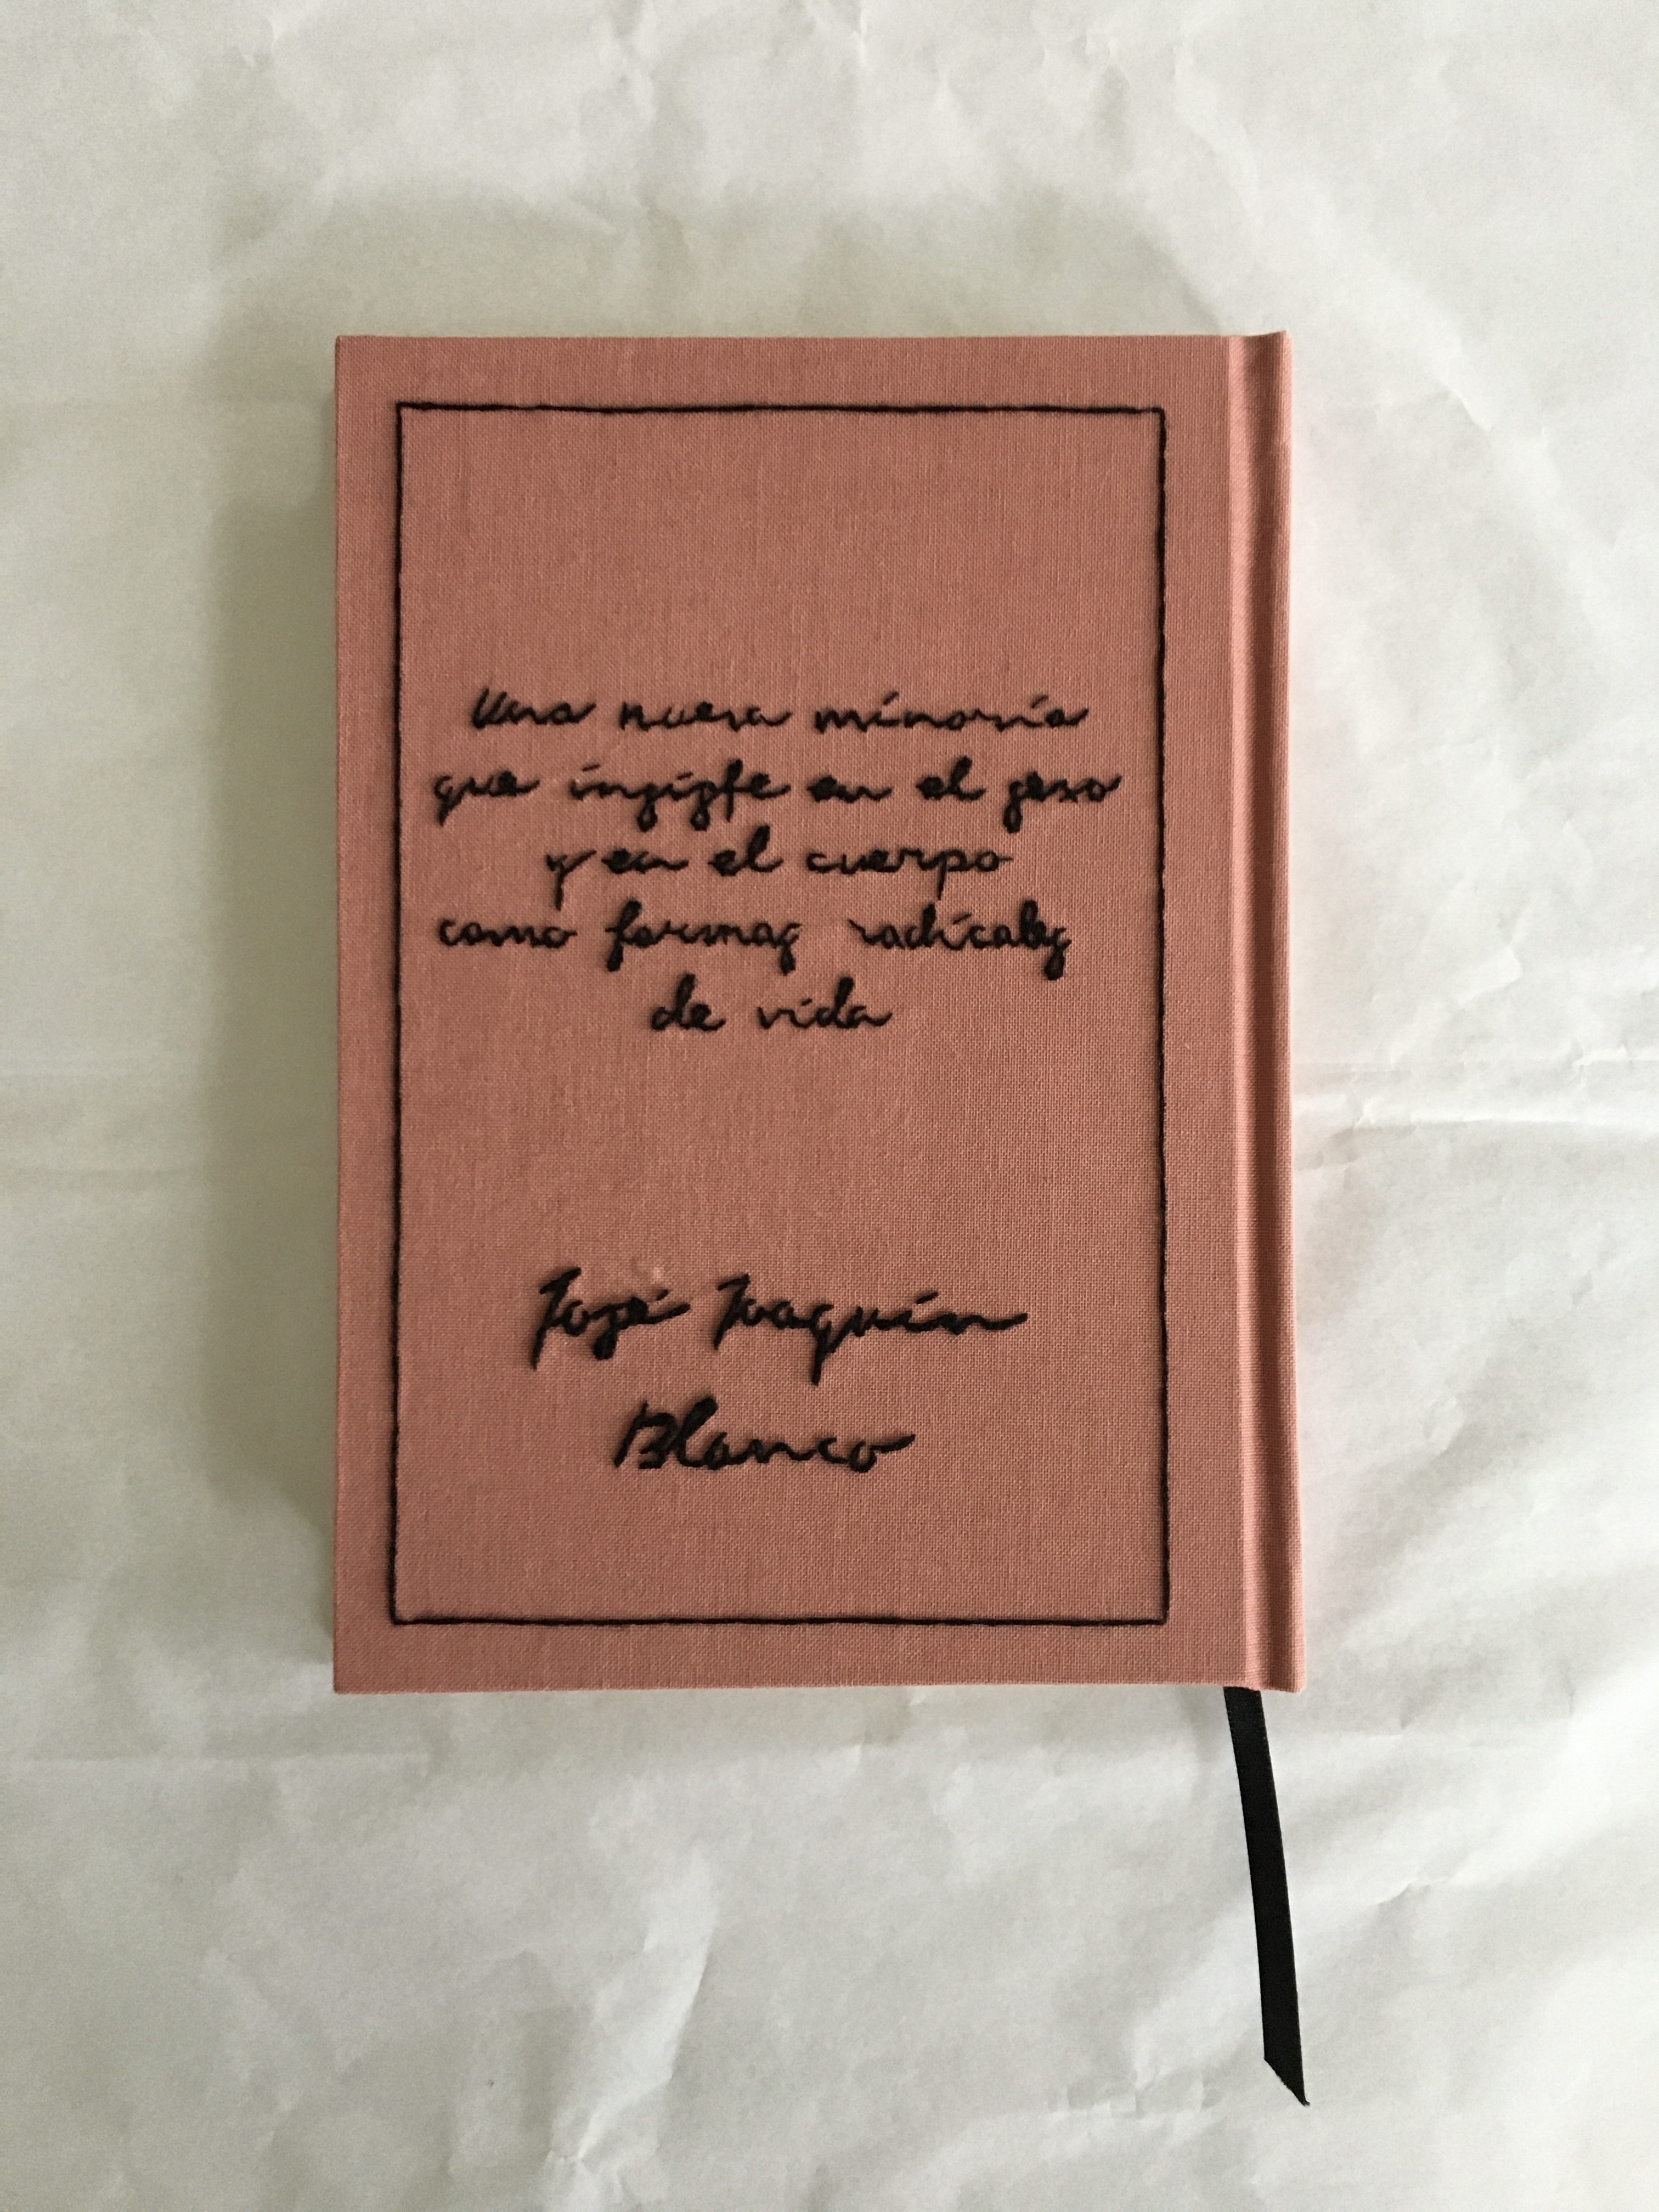 Una nueva minoría
que insiste en el sexo
y en el cuerpo
como formas radicales
de vida
José Joaquín
Blanco